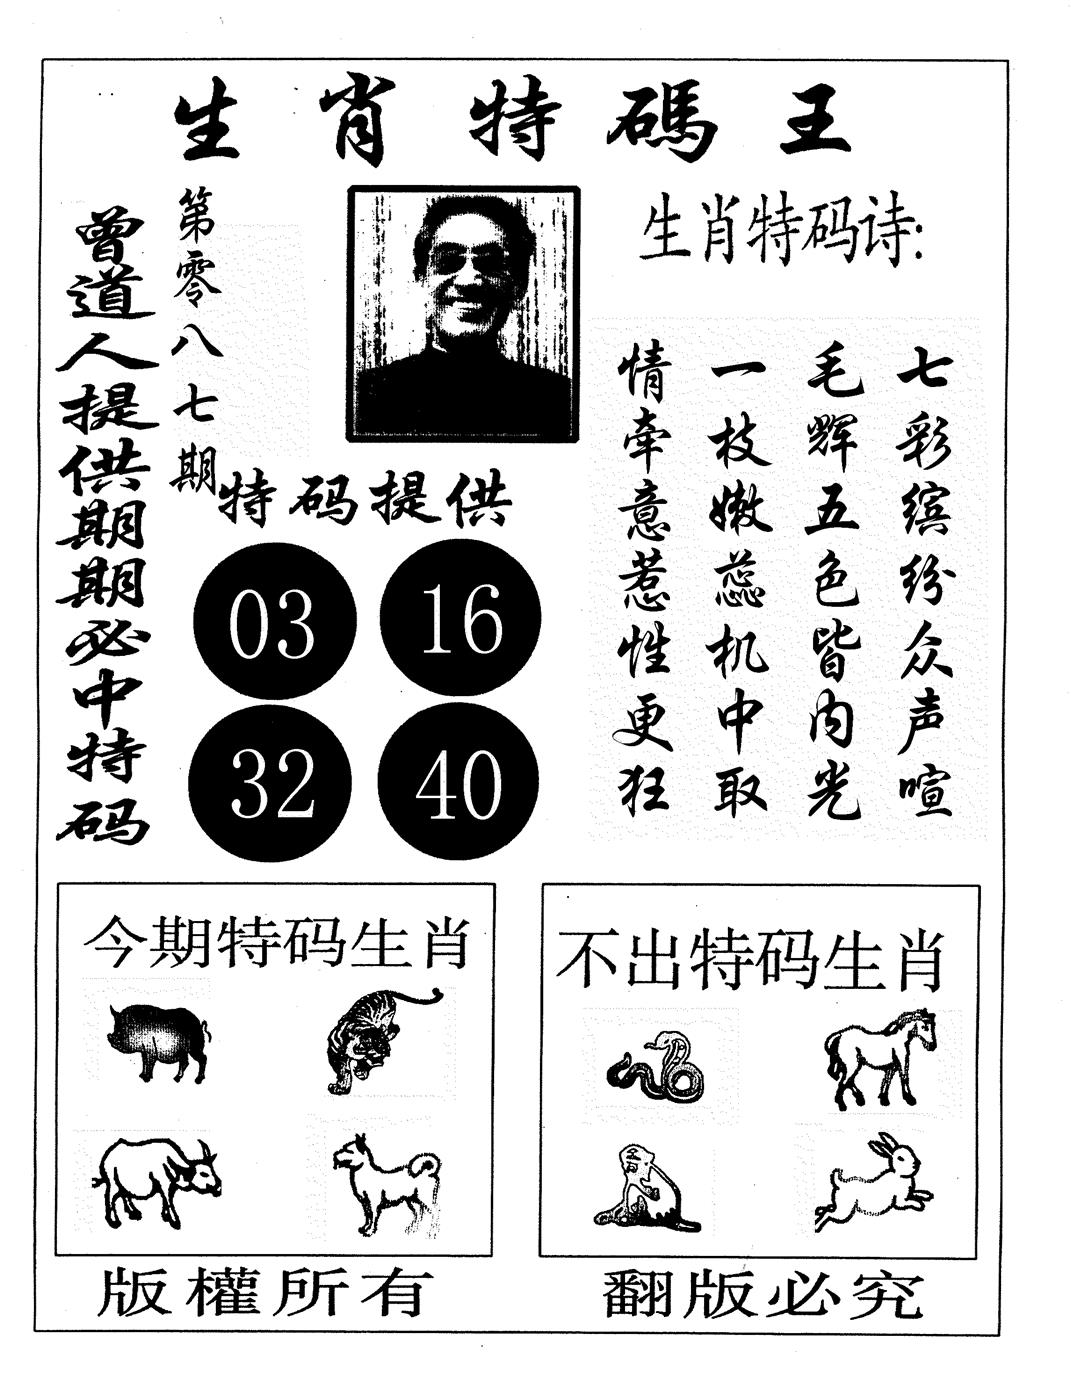 生肖特碼王
第零八七期
曾道人提供期期必中特码
生肖特码诗:
七彩缤纷众声喧
毛辉五色皆内光
一枝嫩蕊机中取
情牵意惹性更狂
特码提供
03 16
32 40
今期特码生肖
不出特码生肖
版權所有
翻版必究